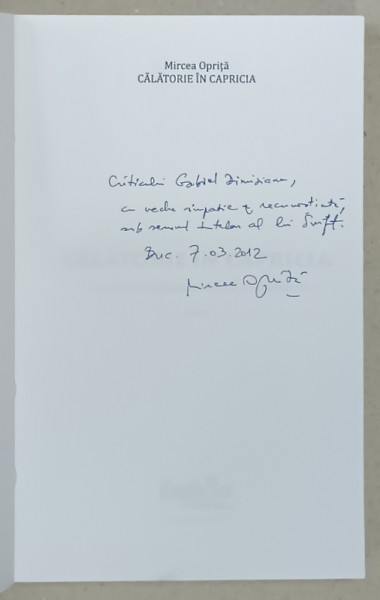 Mircea Opriță
CĂLĂTORIE ÎN CAPRICIA
Criticului Gabriel Dimisianu,
cu veche simpatie și recunoștință,
sub semnul tutelar al lui Swift.
Buc. 7.03.2012
Mircea Opriță